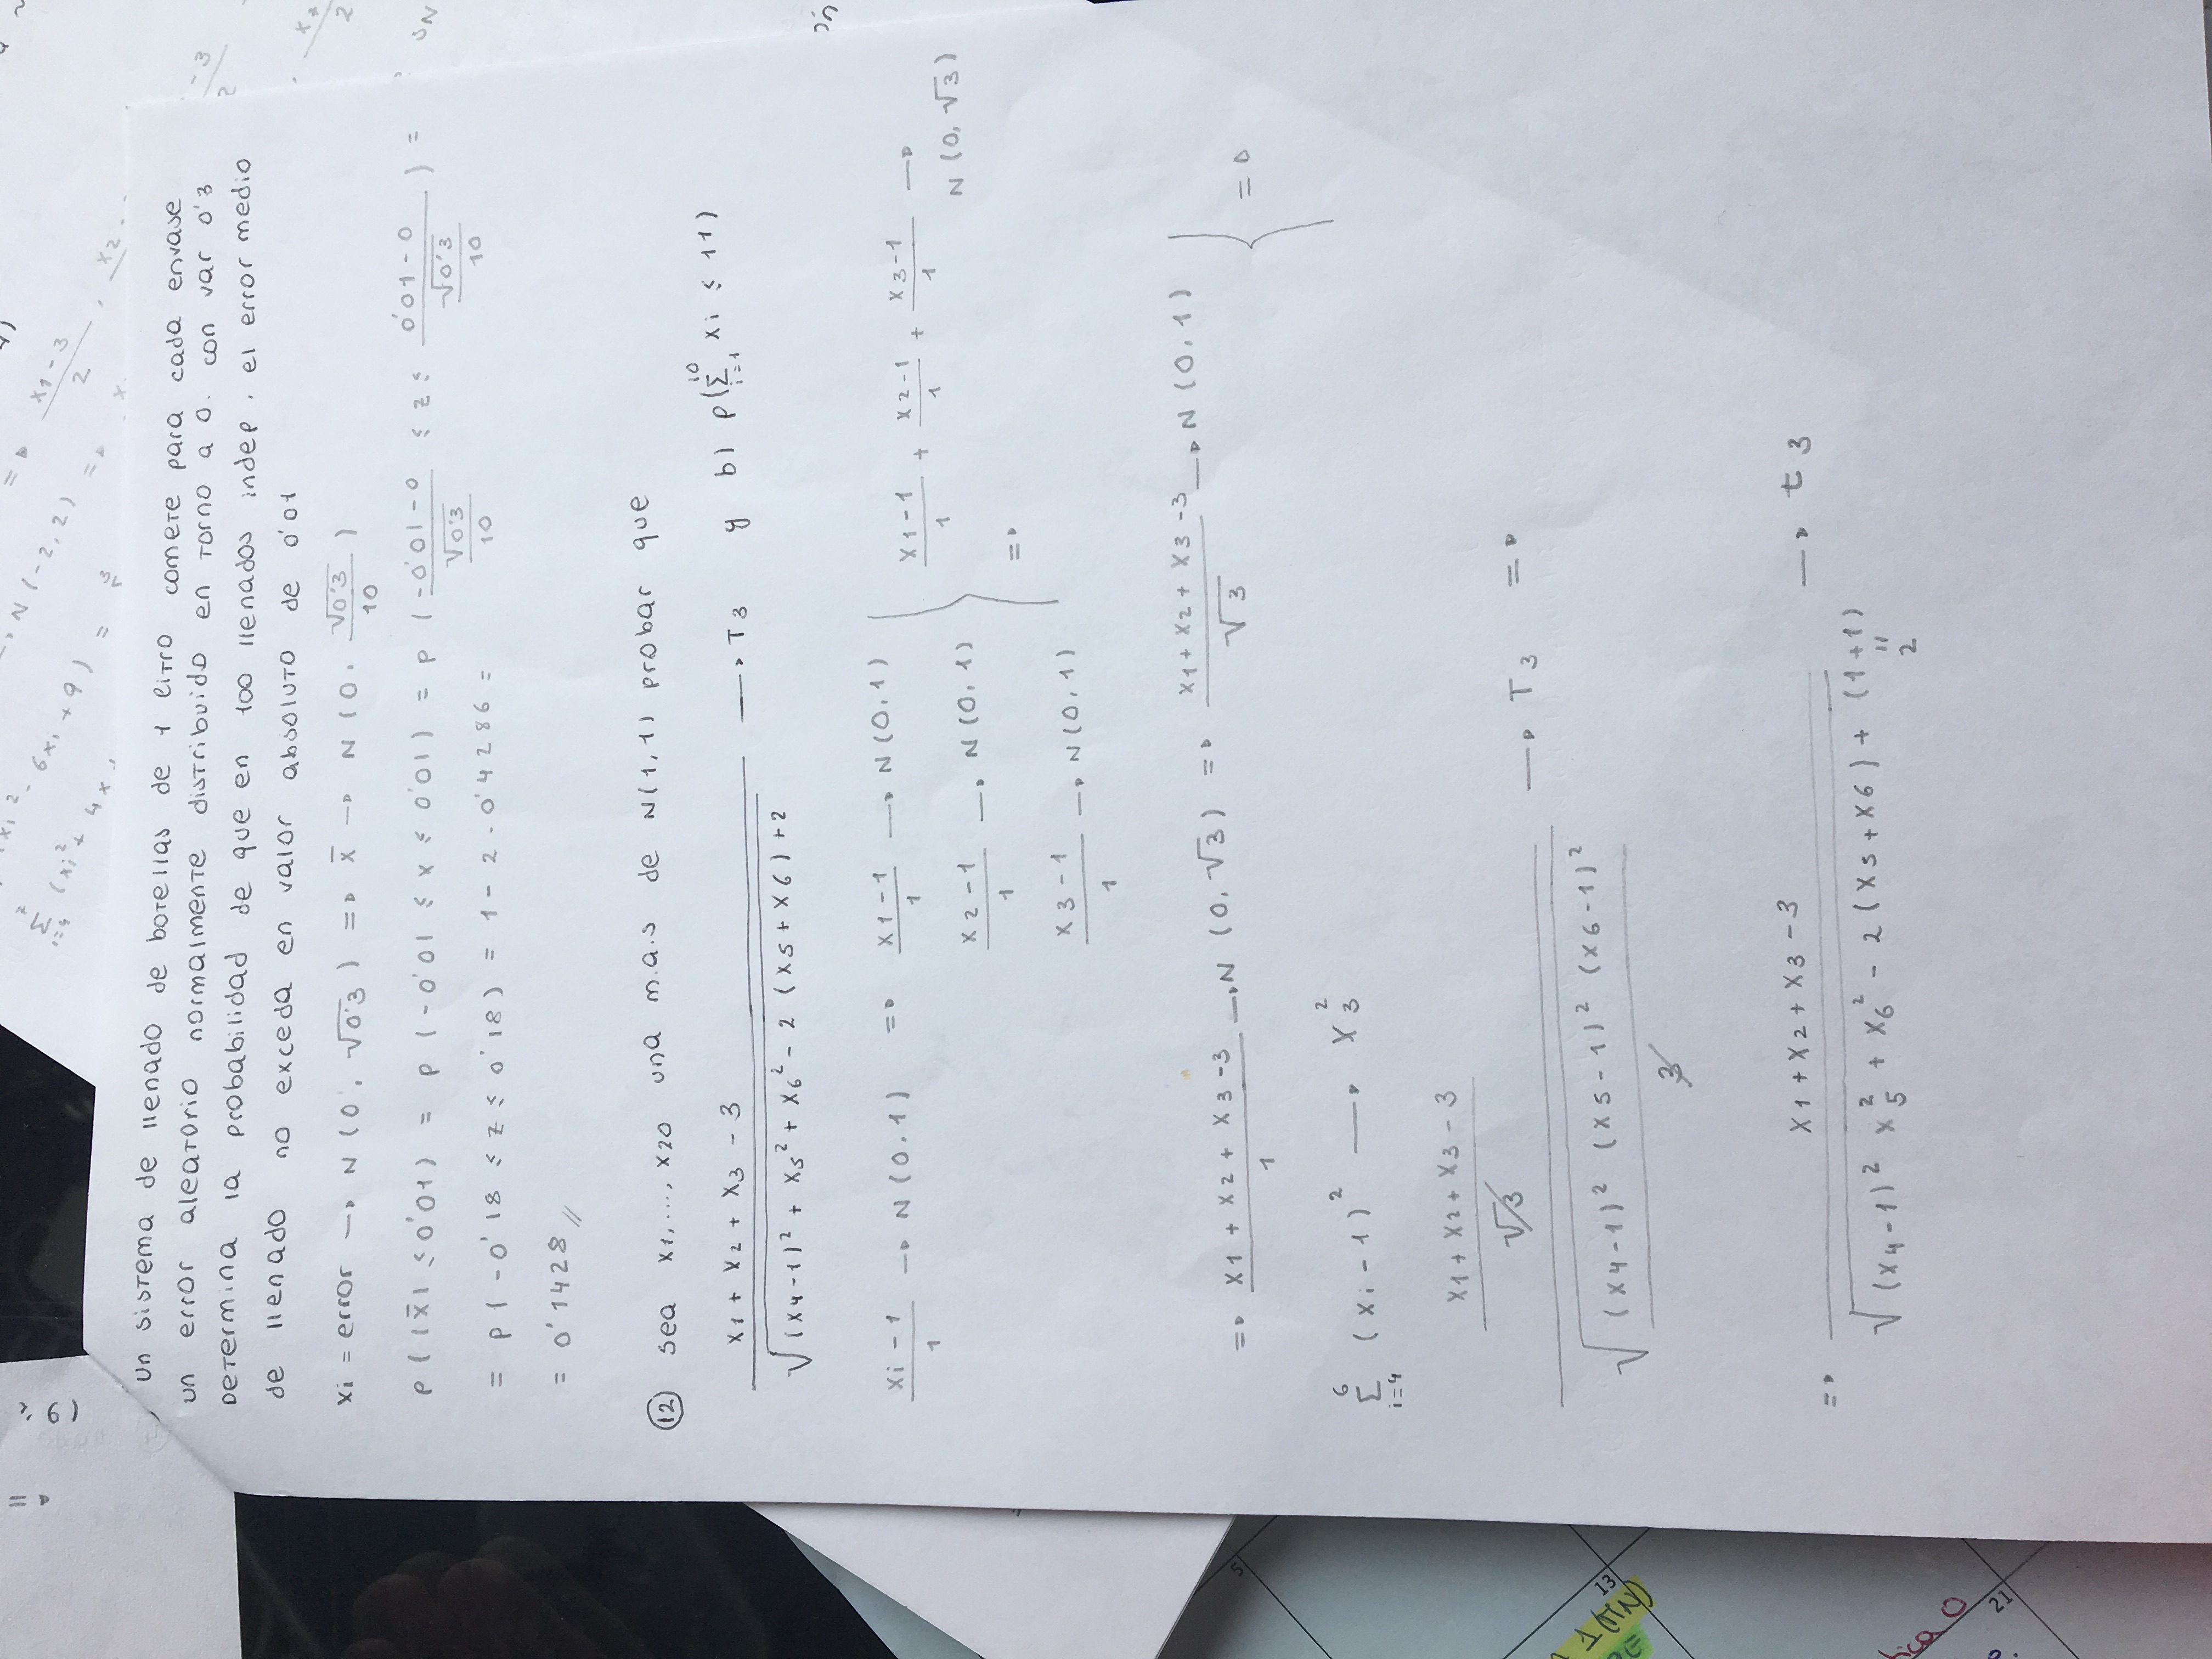 un sistema de llenado de botellas de 1 litro comete para cada envase
un error aleatorio normalmente distribuido en torno a 0. con var 0'3
Determina la probabilidad de que en 100 llenados indep. el error medio
de llenado no exceda en valor absoluto de 0'01
xi = error → N(0, √0'3) ⇒ x̄ → N(0, √0'3/10)
P(|x̄| ≤ 0'01) = P(-0'01 ≤ x ≤ 0'01) = P((-0'01-0)/(√0'3/10) ≤ z ≤ (0'01-0)/(√0'3/10)) =
= P(-0'18 ≤ z ≤ 0'18) = 1 - 2 · 0'4286 =
= 0'1428 //
12 sea x1, ..., x20 una m.a.s de N(1,1) probar que
(x1 + x2 + x3 - 3)/√((x4-1)² + x5² + x6² - 2(x5 + x6) + 2) → T3 y b) P(Σ_{i=1}^{10} xi ≤ 11)
(xi - 1)/1 → N(0,1) ⇒ (x1-1)/1 → N(0,1)
(x2-1)/1 → N(0,1)
(x3-1)/1 → N(0,1)
(x1-1)/1 + (x2-1)/1 + (x3-1)/1 →
N(0, √3)
⇒
⇒ (x1 + x2 + x3 - 3)/1 → N(0, √3) ⇒ (x1 + x2 + x3 - 3)/√3 → N(0,1)
⇒
Σ_{i=4}^{6} (xi - 1)² → χ²_3
((x1 + x2 + x3 - 3)/√3)/√(((x4-1)² (x5-1)² (x6-1)²)/3) → T3 ⇒
⇒ (x1 + x2 + x3 - 3)/√((x4-1)² x5² + x6² - 2(x5 + x6) + (1+1)) → t3
=
2
xi² - 6xi + 9) =
→ N(-2, 2) ⇒
⇒ (x1 - 3)/2 ,
(xi² + 4x
5
13
21